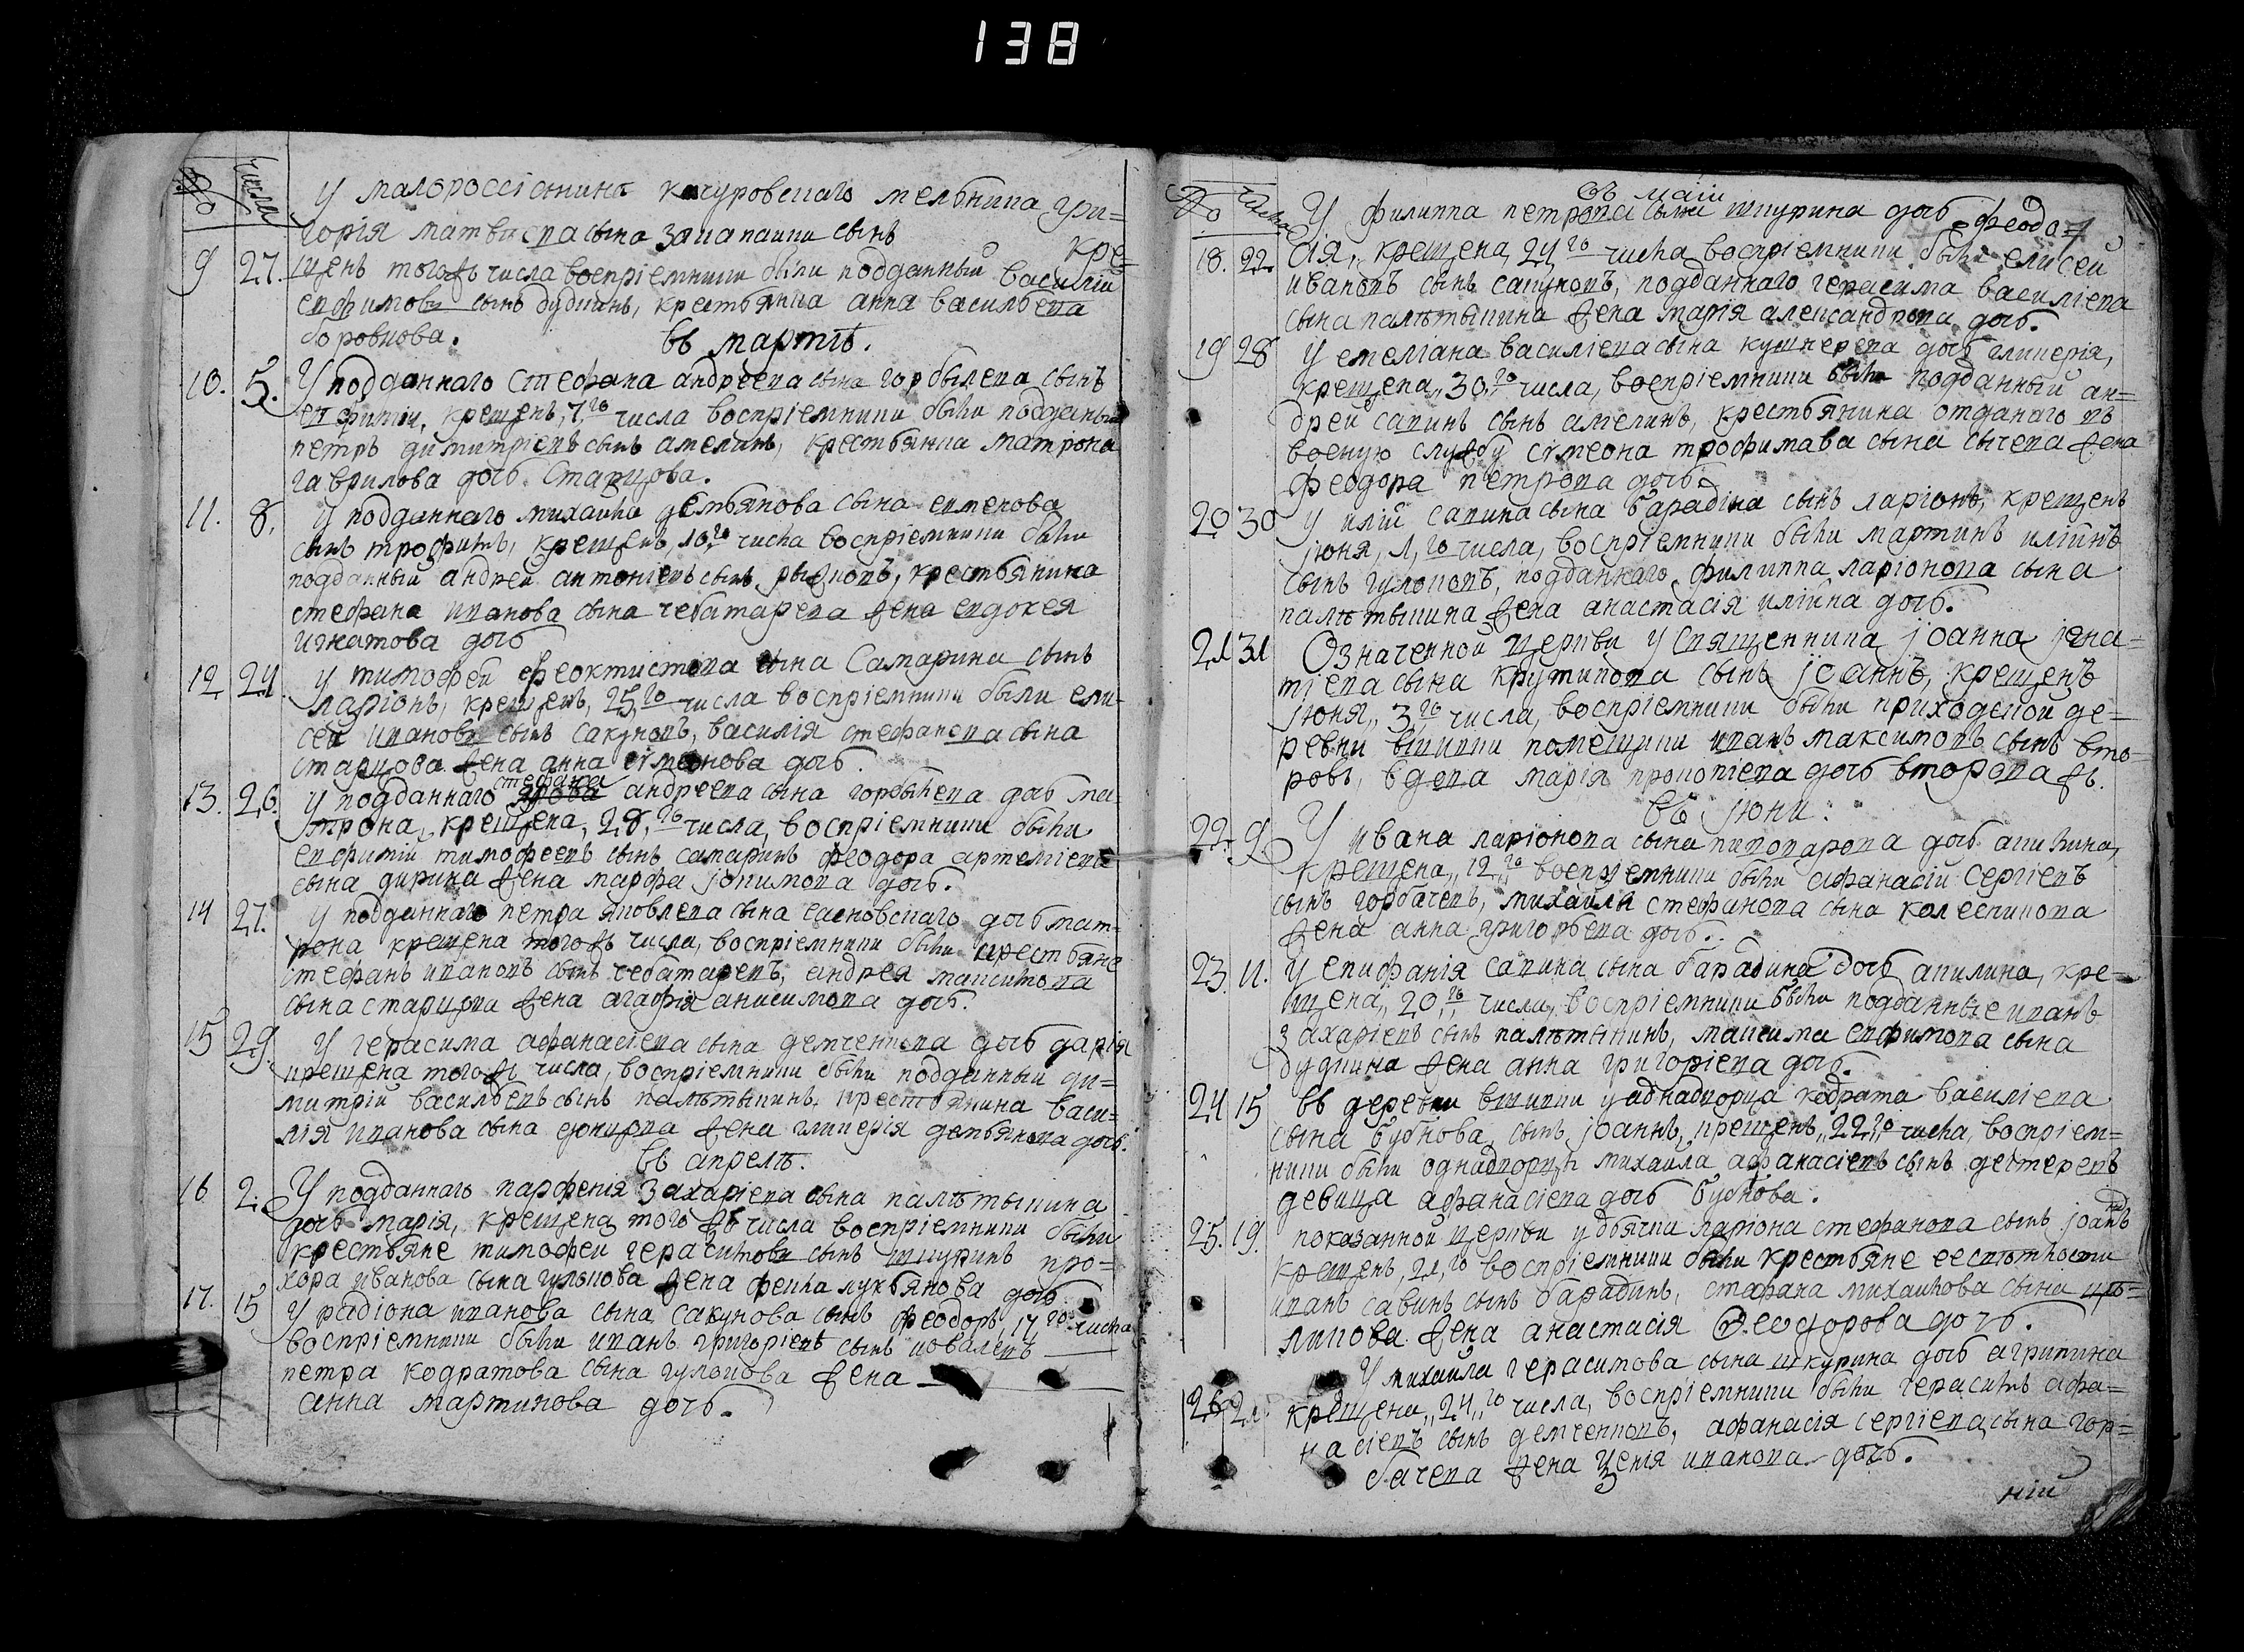 138
№ числа
У малороссіянина качуровскаго мельника гри=
горія матвиева сына запапаики сынъ
кре=
9 27. щенъ тогожъ числа воспріемники были подданный василій
евфимовъ сынъ дудкинъ, крестьянка анна васильева
боровкова.
въ мартѣ.
10. 5. У подданнаго стефана андреева сына горбылева сынъ
евфимій, крещенъ, 7,го числа воспріемники были подданый
петръ димитріевъ сынъ амелинъ, крестьянка матрона
гаврилова дочь старцова.
11. 8. У подданнаго михаила демьянова сына
сынъ трофимъ, крещенъ, 10,го числа воспріемники были
подданный андрей антоніевъ сынъ рыжковъ, крестьянина
стефана иванова сына чеботарева жена евдокея
игнатова дочь
12 24 У тимофея феоктистова сына Самарина сынъ
ларіонъ, крещенъ, 25,го числа воспріемники были ели=
сей ивановъ сынъ сакуновъ, василія стефанова сына
старцова жена анна сѵмеонова дочь.
стефана
13. 26. У подданнаго андреева сына горбылева дочь ма=
трона, крещена, 28,го числа, воспріемники были
евфимій тимофеевъ сынъ самаринъ феодора артеміева
сына дирина жена марфа дочь.
14 27. У подданнаго петра яковлева сына дочь мат=
рона крещена тогожъ числа, воспріемники были крестьяне
стефанъ ивановъ сынъ чеботаревъ, андрея максимова
сына старцова жена агафія анисимова дочь.
15 29. У герасима афанасіева сына демченкова дочь дарія
крещена тогожъ числа, воспріемники были подданный ди=
митрій васильевъ сынъ палѣтыкинъ, крестьянина васи=
лія иванова сына жена гликерія демьянова дочь.
въ апрелѣ.
16. 2. У подданнаго парфенія захаріева сына палѣтыкина
дочь марія, крещена того жъ числа воспріемники были
крестьяне тимофей герасимовъ сынъ шкуринъ про=
хора иванова сына гулькова жена фекла лукьянова дочь
17. 15 У радіона иванова сына сакунова сынъ феодоръ, 17 го числа
воспріемники были иванъ григоріевъ сынъ ковалевъ
петра кодратова сына гулькова жена
анна мартинова дочь.
№ числа
въ маіи
У филиппа петрова сына шкурина дочь феодо=
18. 22. сія, крещена, 24 го числа воспріемники были елисей
ивановъ сынъ сакуновъ, подданнаго герасима василіева
сына палѣтыкина жена марія александрова дочь.
19 28 У емеліана василіева сына кушнерева дочь гликерія,
крещена, 30,го числа, воспріемники были подданный ан=
дрей савинъ сынъ амелинъ, крестьянина отданаго въ
военую службу сѵмеона трофимава сына сычева жена
феодора петрова дочь.
20 30 У иліи савина сына барабина сынъ ларіонъ, крещенъ
іюня, 1,го числа, воспріемники были мартинъ иліинъ
сынъ гульковъ, подданнаго филиппа ларіонова сына
палѣтыкина жена анастасія иліина дочь.
21 31 Означенной церкви у священника іоанна игна=
тіева сына крутикова сынъ іоаннъ, крещенъ
іюня, 3,го числа, воспріемники были приходской де=
ревни вшивки помещики иванъ максимовъ сынъ вто=
ровъ, вдова марія прокопіева дочь второва жъ.
въ іюни:
22. 9. У ивана ларіонова сына пивоварова дочь акилина,
крещена, 12,го воспріемники были афанасій сергіевъ
сынъ горбачевъ, михаила стефанова сына колесникова
жена анна григорьева дочь.
23. 11. У епифанія савина сына барабина дочь акилина, кре=
щена, 20,го числа, воспріемники были подданные иванъ
захаріевъ сынъ палѣтыкинъ, максима евфимова сына
дудкина жена анна григоріева дочь.
24 15 въ деревни вшивки у аднадворца кодрата василіева
сына бубнова, сынъ іоаннъ, крещенъ, 22,го числа, воспріем=
ники были однадворцы михаила афанасіевъ сынъ дегтеревъ
девица афанасіева дочь бубнова.
25. 19. показанной церкви у дьячка ларіона стефанова сынъ іоанъ
крещенъ, 21,го воспріемники были крестьяне ее свѣтлости
иванъ савинъ сынъ барабинъ, стефана михаилова сына
жена анастасія Феодорова дочь.
У михаила герасимова сына шкурина дочь агрипина
26 21. крещена, 24,го числа, воспріемники были герасимъ афа=
насіевъ сынъ демченковъ, афанасія сергіева сына гор=
бачева жена ксенія иванова дочь.
ніи